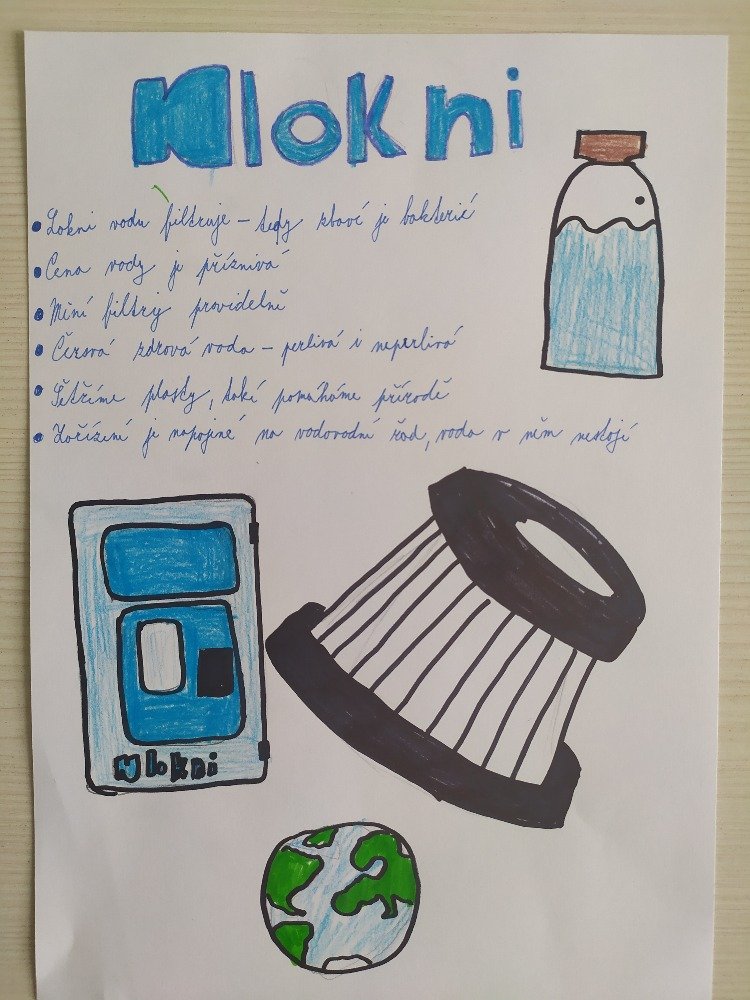 lokni
Lokni vodu filtruje – tedy zbaví ji bakterií
Cena vody je příznivá
Mění filtry pravidelně
Čerstvá zdravá voda – perlivá i neperlivá
Šetříme plasty, také pomáháme přírodě
Zařízení je napojené na vodovodní řad, voda v něm nestojí
lokni